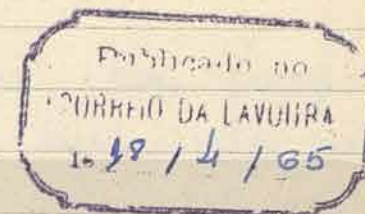 Publicado no
CORREIO DA LAVOURA
18 / 4 / 65